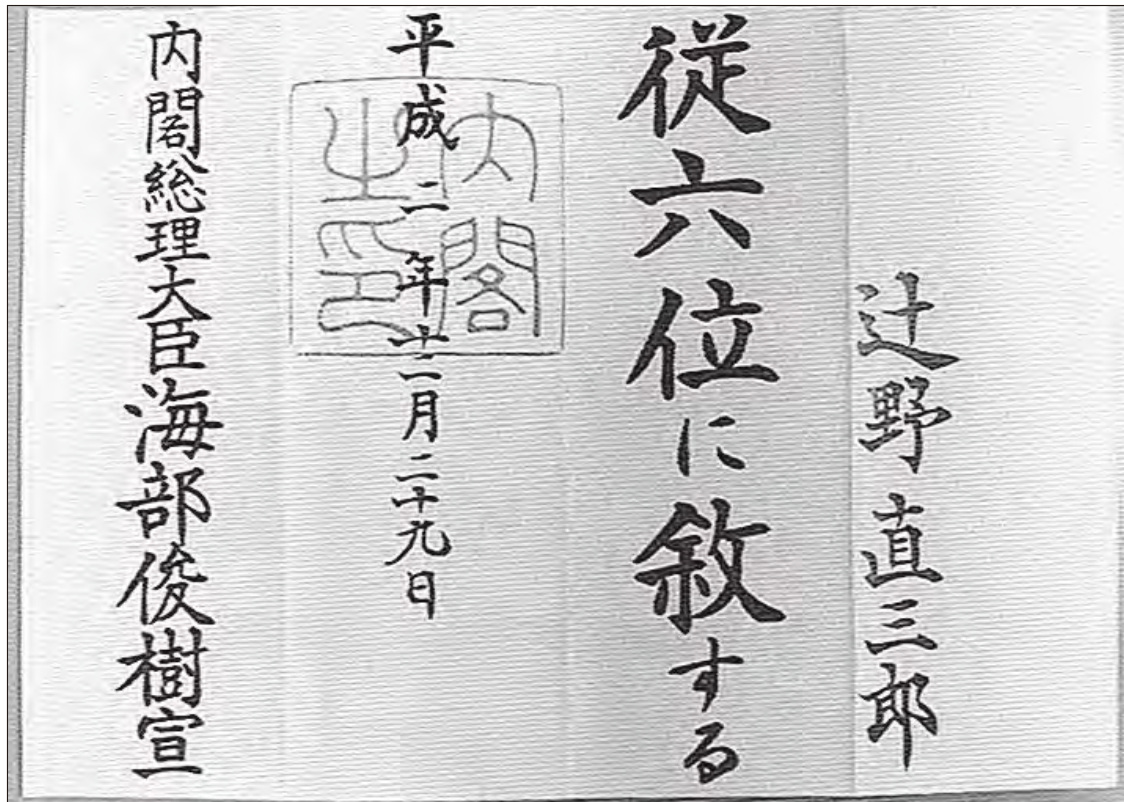 辻野直三郎
従六位に敘する
平成二年十二月二十九日
内閣之印
内閣総理大臣海部俊樹宣